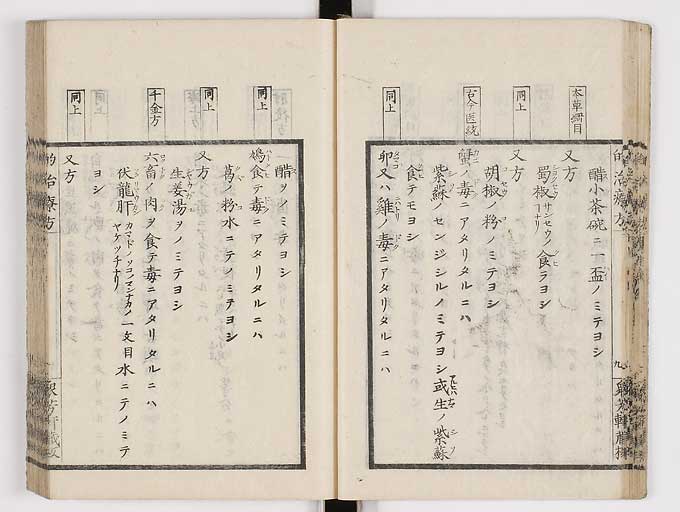 本草綱目
同上
古今医統
同上
醋小茶碗ニ一盃ノミテヨシ
又方
蜀椒 サンセウノコナリ 食テヨシ
又方
胡椒ノ粉ノミテヨシ
蟹ノ毒ニアタリタルニハ
紫蘇ノセンジシルノミテヨシ或生ノ紫蘇
食テモヨシ
卵又ハ雞ノ毒ニアタリタルニハ
的治療方
九
同上
同上
千金方
同上
醋ヲノミテヨシ
鳩食テ毒ニアタリタルニハ
葛ノ粉水ニテノミテヨシ
又方
生姜湯ヲノミテヨシ
六畜ノ肉ヲ食テ毒ニアタリタルニハ
伏龍肝 カマドノソコノマンナカノヤケツチナリ 一文目水ニテノミテ
ヨシ
又方
的治療方